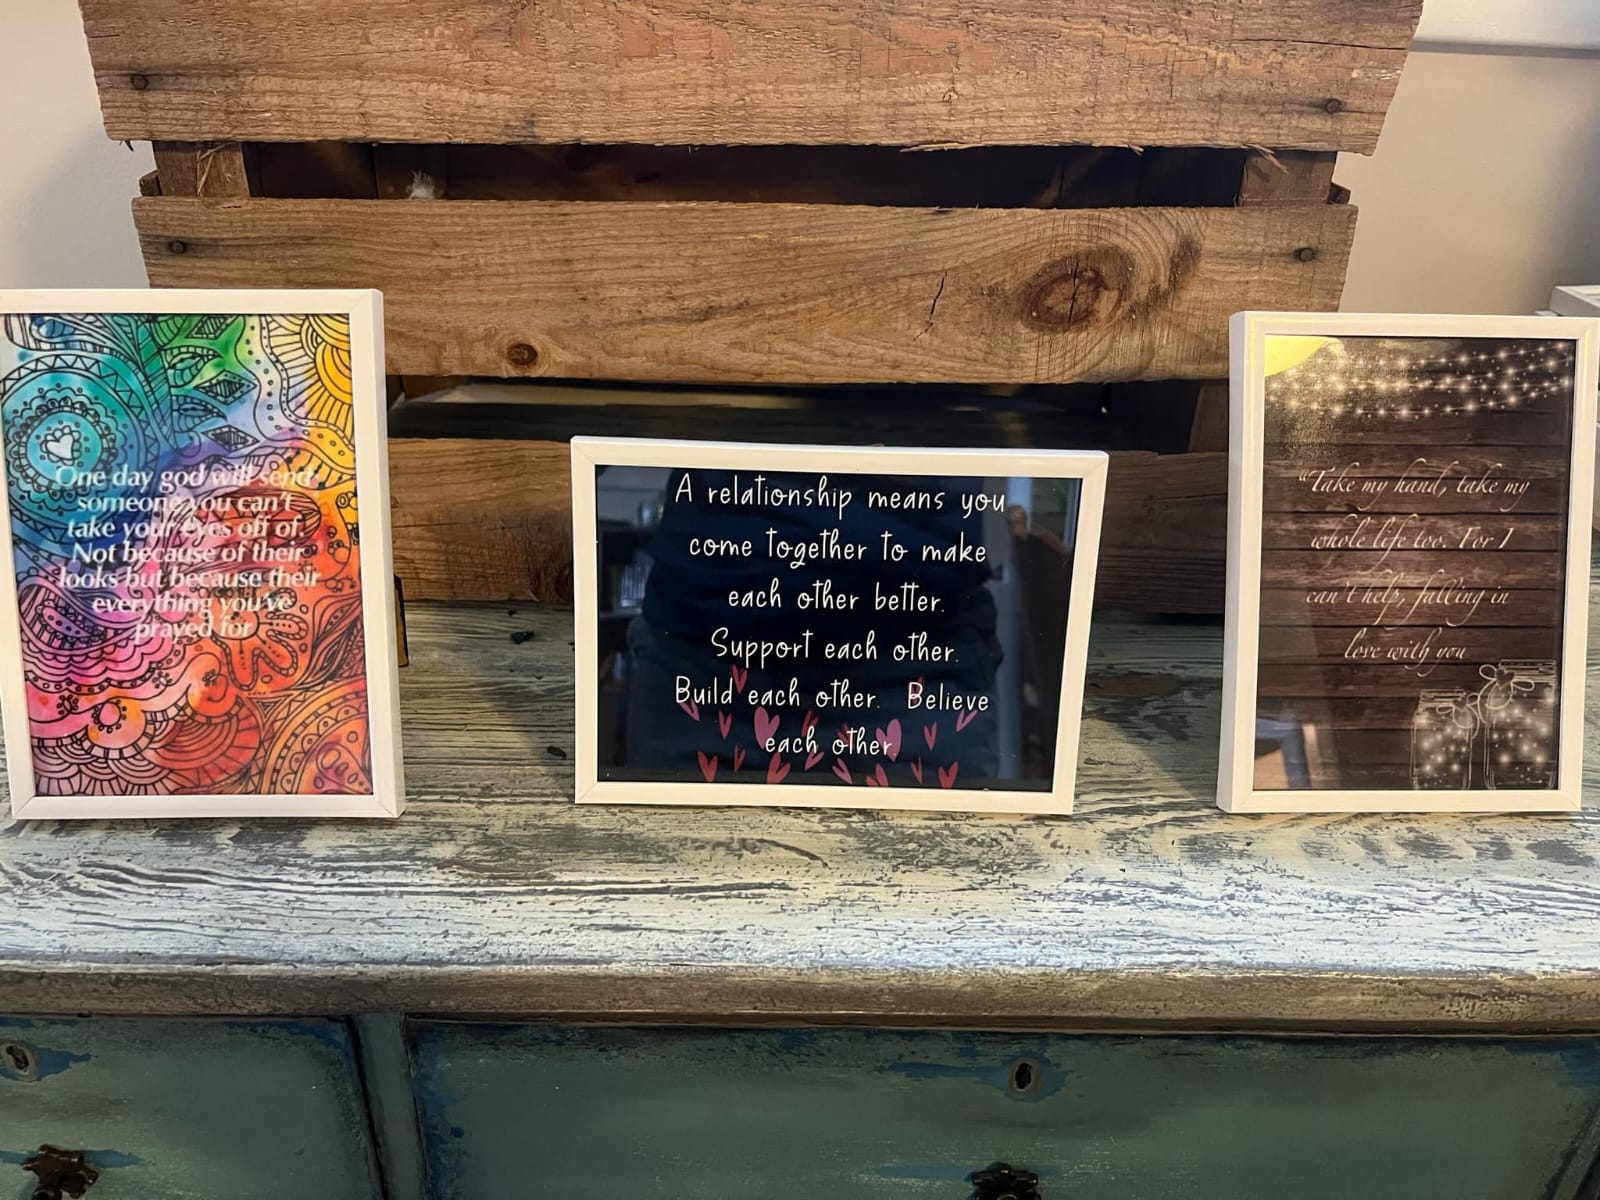 One day god will send
someone you can't
take your eyes off of.
Not because of their
looks but because their
everything you've
prayed for
A relationship means you
come together to make
each other better.
Support each other.
Build each other. Believe
each other.
"Take my hand, take my
whole life too. For I
can't help, falling in
love with you